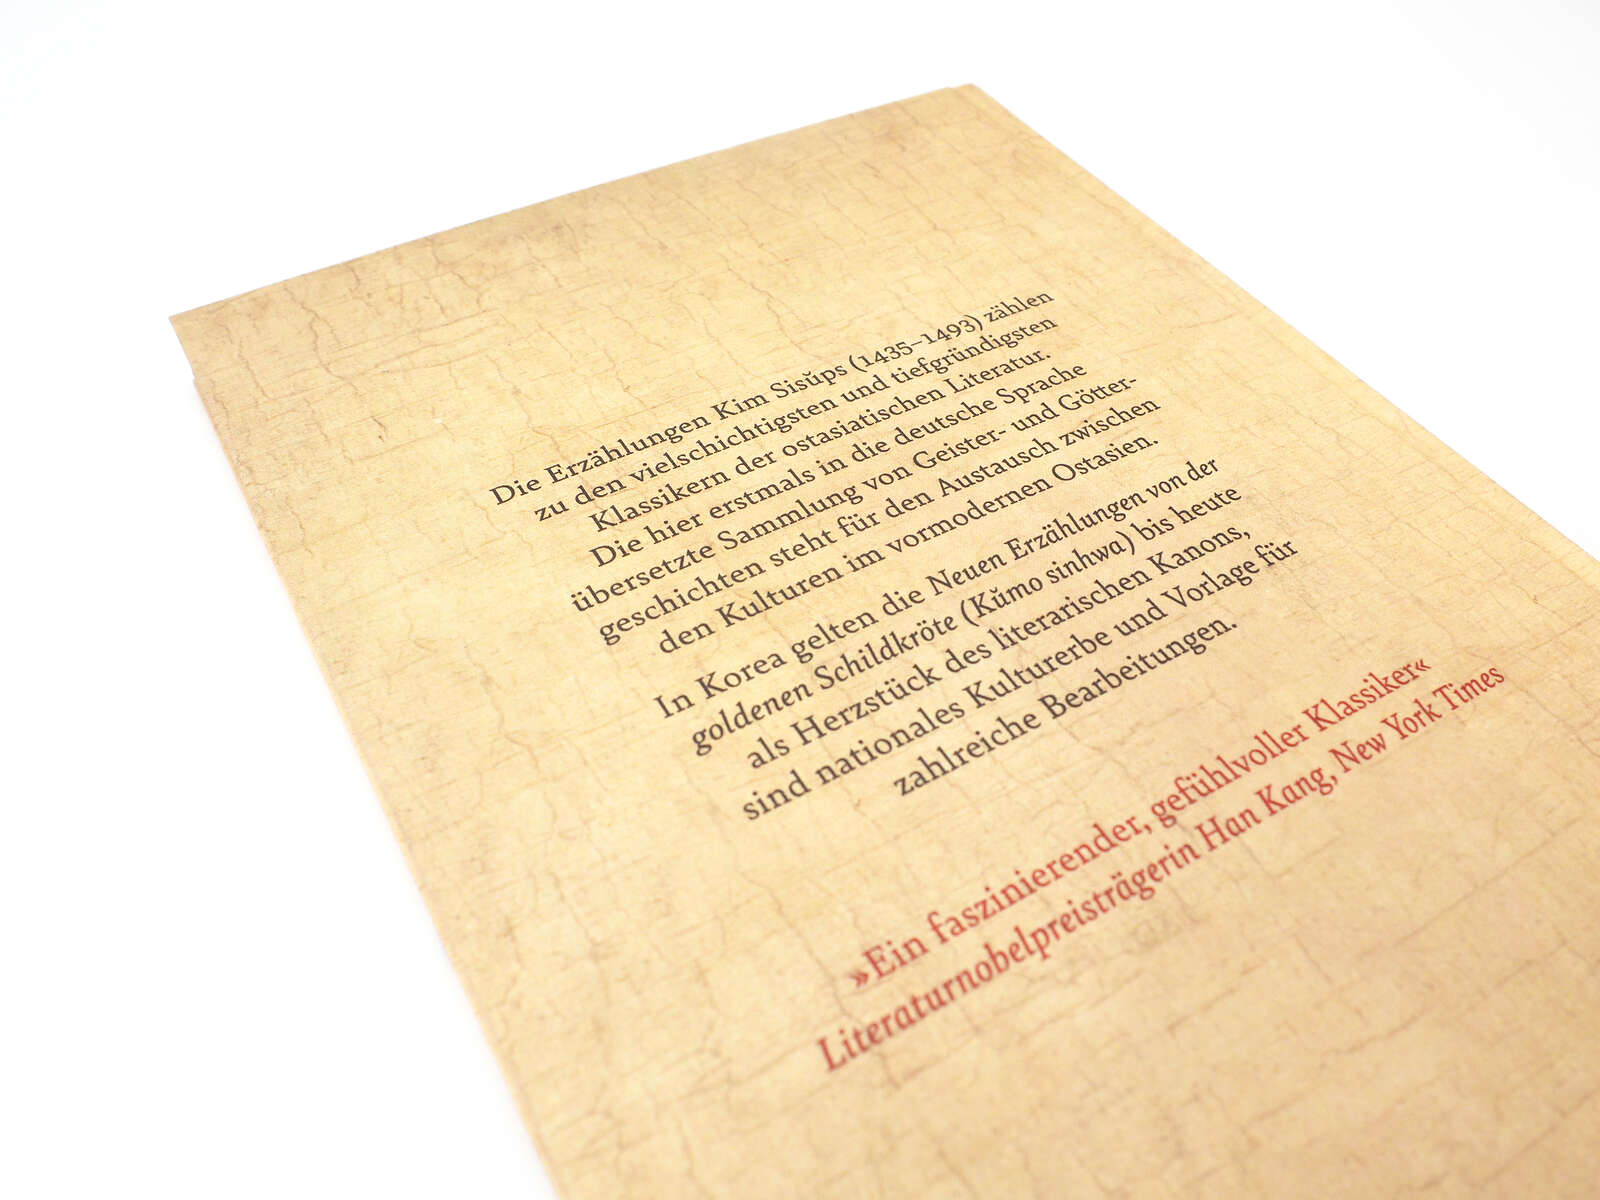 Die Erzählungen Kim Sisŭps (1435–1493) zählen
zu den vielschichtigsten und tiefgründigsten
Klassikern der ostasiatischen Literatur.
Die hier erstmals in die deutsche Sprache
übersetzte Sammlung von Geister- und Götter-
geschichten steht für den Austausch zwischen
den Kulturen im vormodernen Ostasien.
In Korea gelten die Neuen Erzählungen von der
goldenen Schildkröte (Kŭmo sinhwa) bis heute
als Herzstück des literarischen Kanons,
sind nationales Kulturerbe und Vorlage für
zahlreiche Bearbeitungen.
»Ein faszinierender, gefühlvoller Klassiker«
Literaturnobelpreisträgerin Han Kang, New York Times